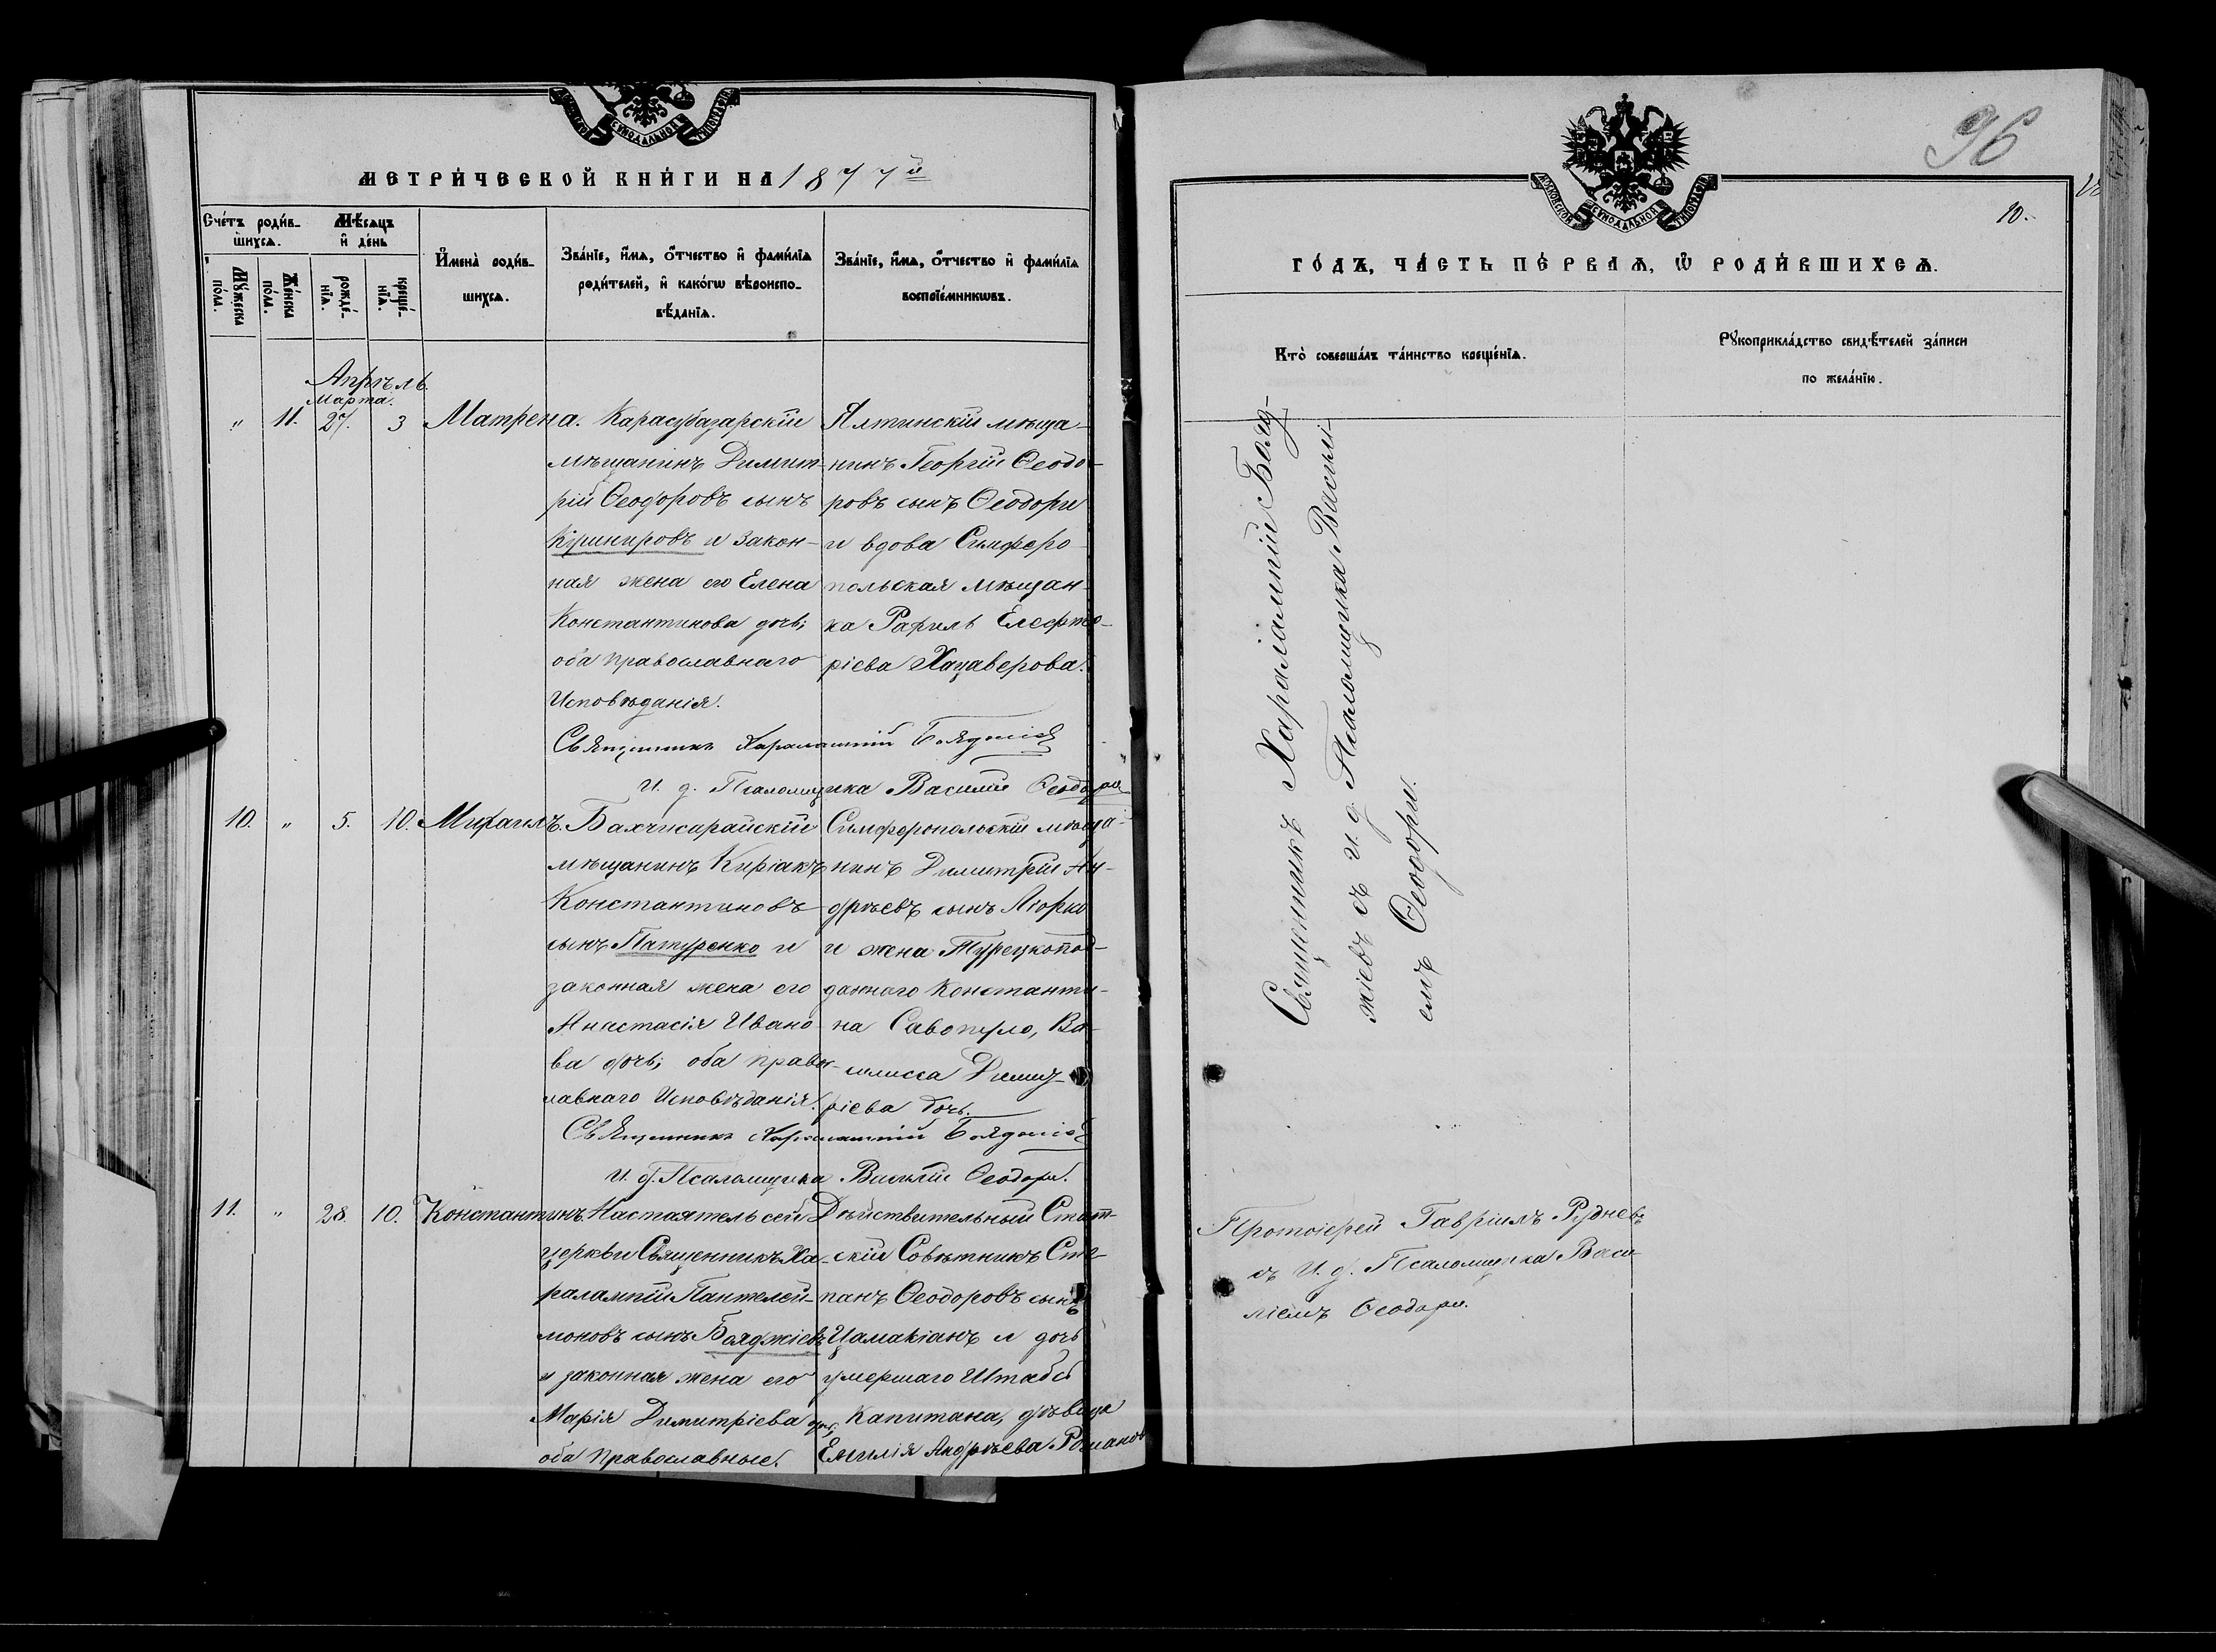 МЕТРИ́ЧЕСКОЙ КНИ́ГИ НА 1877й
Сче́тъ роди́в-
шихсѧ.
Мѣ́сѧцъ
и҆ де́нь
И҆мена̀ роди́в-
шихсѧ.
Зва́нїе, и҆́мѧ, ѻ҆́тчество и҆ фами́лїѧ
роди́телей, и҆ како́гѡ вѣроиспо-
вѣ́данїѧ.
Зва́нїе, и҆́мѧ, ѻ҆́тчество и҆ фами́лїѧ
воспрїе́мникѡвъ.
Мꙋ́жеска
по́ла.
Же́нска
по́ла.
рожде́-
нїѧ.
креще́-
нїѧ.
Апрѣль.
Марта.
„ 11. 27. 3 Матрена. Карасубазарскій
мѣщанинъ Димит-
рій Ѳеодоровъ сынъ
Куюнировъ и закон-
ная жена его Елена
Константинова дочь;
оба православнаго
Исповѣданія.
Ялтинскій мѣща-
нинъ Георгій Ѳеодо-
ровъ сынъ Ѳеодори
и вдова Симферо-
польская мѣщан-
ка Рафиль Елефте-
ріева Хацаверова.
Священникъ Харалампій Бояджіевъ
И. д. Псаломщика Василій Ѳеодори
10. „ 5. 10. Михаилъ. Бахчисарайскій
мѣщанинъ Киріакъ
Константиновъ
сынъ Патуренко и
законная жена его
Анастасія Ивано-
ва дочь; оба правос-
лавнаго Исповѣданія.
Симферопольскій мѣща-
нинъ Димитрій Ан-
дреевъ сынъ Люрки
и жена Турецкопод-
даннаго Константи-
на Савопуло, Ва-
силисса Димит-
ріева дочь.
Священникъ Харалампій Бояджіевъ
И. д. Псаломщика Василій Ѳеодори.
11. „ 28. 10. Константинъ. Настоятель сей
церкви Священникъ Ха-
ралампій Пантелей-
моновъ сынъ Бояджіевъ
и законная жена его
Марія Димитріева дочь;
оба православные.
Дѣйствительный Стат-
скій Совѣтникъ Сте-
панъ Ѳеодоровъ сынъ
Цамакіанъ и дочь
умершаго Штабсъ
Капитана, дѣвица
Емилія Андреева Романов
96
10.
ГО́ДЪ, ЧА́СТЬ ПЕ́РВАѦ, Ѽ РОДИ́ВШИХСѦ.
Кто̀ соверша́лъ та́инство креще́нїѧ.
Рꙋкоприкла́дство свидѣ́телей за́писи
по жела́нїю.
Священникъ Харалампій Бояд-
жіевъ съ и. д. Псаломщика Василі-
емъ Ѳеодори.
Протоіерей Гавріилъ Рудневъ
съ И. д. Псаломщика Васи-
ліемъ Ѳеодори.